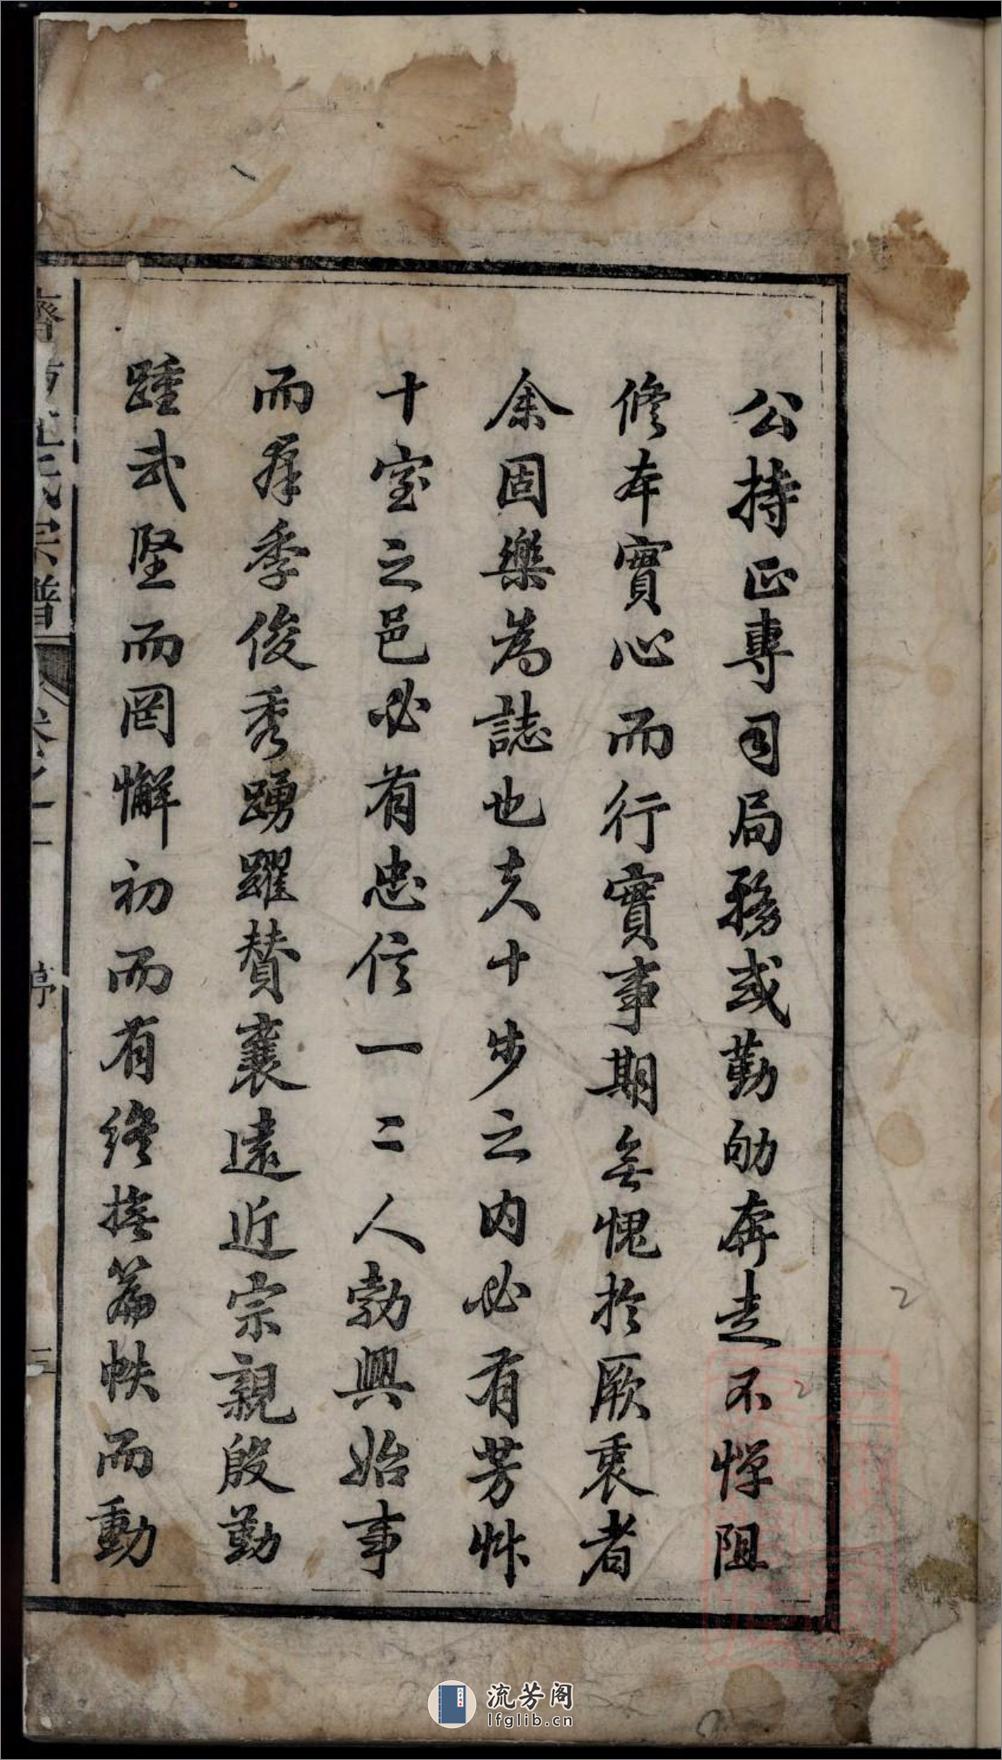 公持正專司局務或勤劬奔走不憚阻
修本實心而行實事期無愧於厥衷者
余固樂為誌也夫十步之内必有芳艸
十室之邑必有忠信一二人勃興始事
而群季俊秀踴躍賛襄遠近宗親殷勤
踵武堅而罔懈初而有終撫篇帙而動
氏宗譜
卷之一
序
三
2
2
流芳阁
lfglib.cn